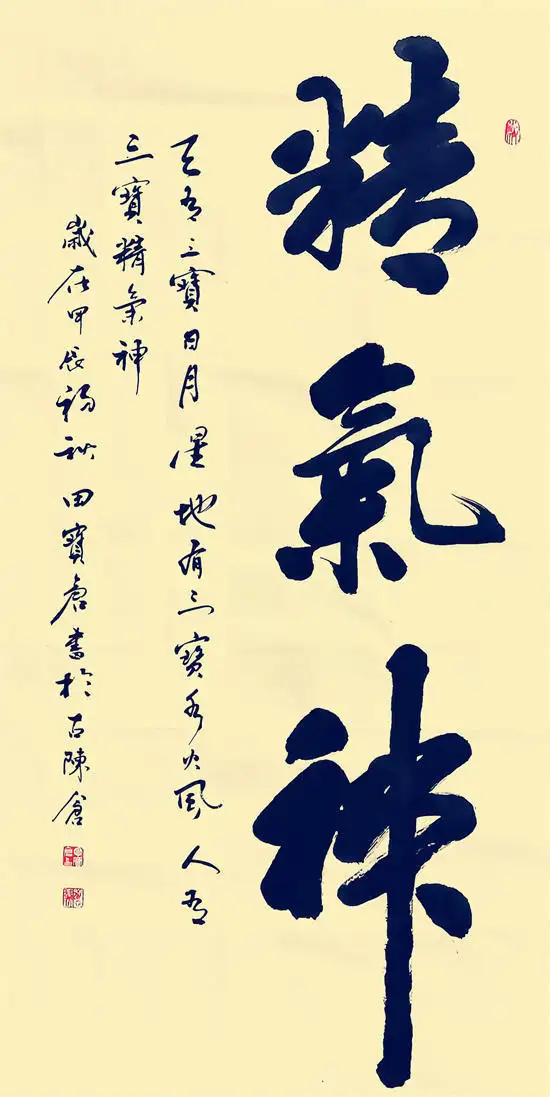 精氣神
天有三寶日月星地有三寶水火風人有
三寶精氣神
歲在甲辰初秋田寶倉書於古陳倉